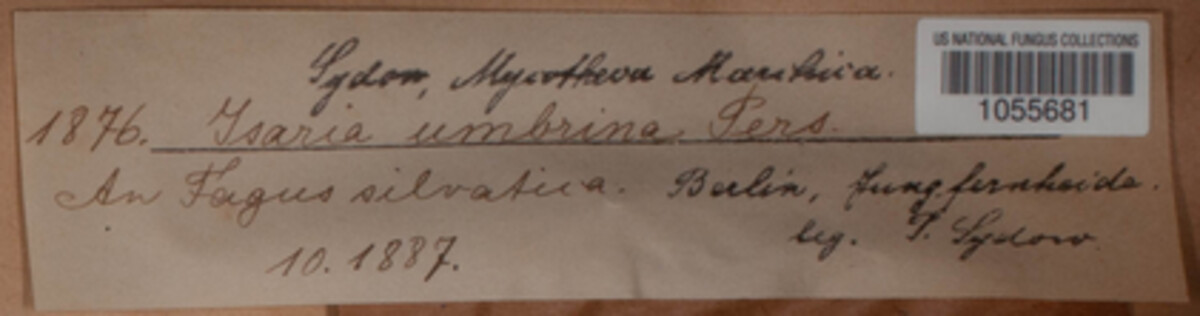 Sydow, Mycotheca Marchica.
US NATIONAL FUNGUS COLLECTIONS
1055681
1876. Isaria umbrina Pers.
An Fagus silvatica. Berlin, Jungfernheide.
leg. P. Sydow.
10. 1887.